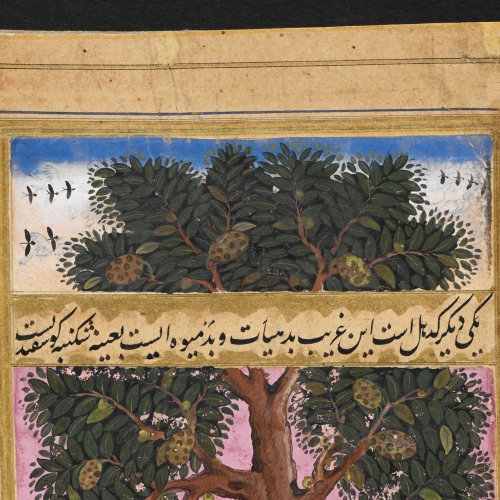 یکی دیگر کدهل است این غریب بدهیأت و بدمیوه ایست بعینه شکنبه گوسفندیست